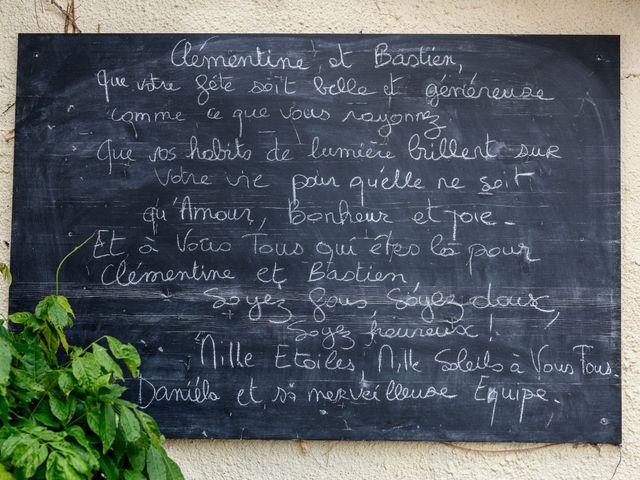 Clémentine et Bastien,
que votre fête soit belle et généreuse
comme ce que vous rayonnez
Que vos habits de lumière brillent sur
Votre vie pour qu'elle ne soit
qu'Amour, Bonheur et joie.
Et à Vous Tous qui êtes là pour
Clémentine et Bastien
Soyez fous, Soyez doux,
Soyez heureux !
Mille Etoiles, Mille Soleils à Vous Tous.
Danièla et sa merveilleuse Equipe.